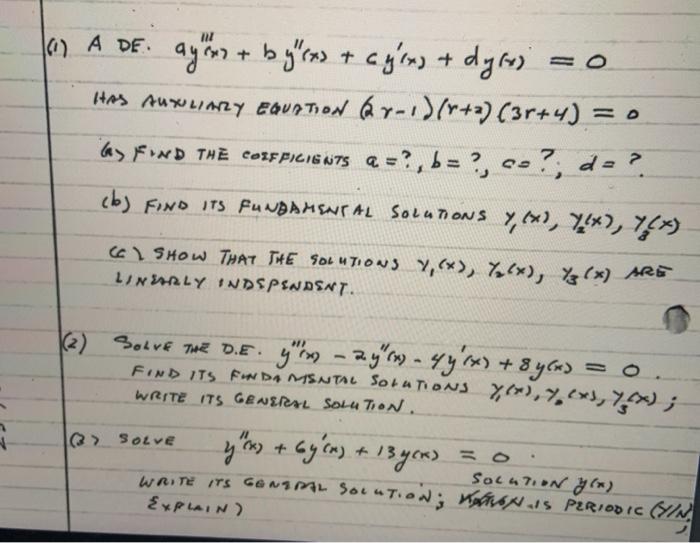 (1) A DE. ay'''(x) + by''(x) + cy'(x) + dy(x) = 0
HAS AUXLIARY EQUATION (2r-1)(r+2)(3r+4) = 0
(a) FIND THE COEFFICIENTS a = ?, b = ?, c = ?, d = ?
(b) FIND ITS FUNDAMENTAL SOLUTIONS Y₁(x), Y₂(x), Y₃(x)
(c) SHOW THAT THE SOLUTIONS Y₁(x), Y₂(x), Y₃(x) ARE
LINEARLY INDEPENDENT.
(2) SOLVE THE D.E. y'''(x) - 2y''(x) - 4y'(x) + 8y(x) = 0.
FIND ITS FUNDAMENTAL SOLUTIONS Y₁(x), Y₂(x), Y₃(x);
WRITE ITS GENERAL SOLUTION.
(3) SOLVE y''(x) + 6y'(x) + 13y(x) = 0.
SOLUTION y(x)
WRITE ITS GENERAL SOLUTION; IS PERIODIC (Y/N,
EXPLAIN)